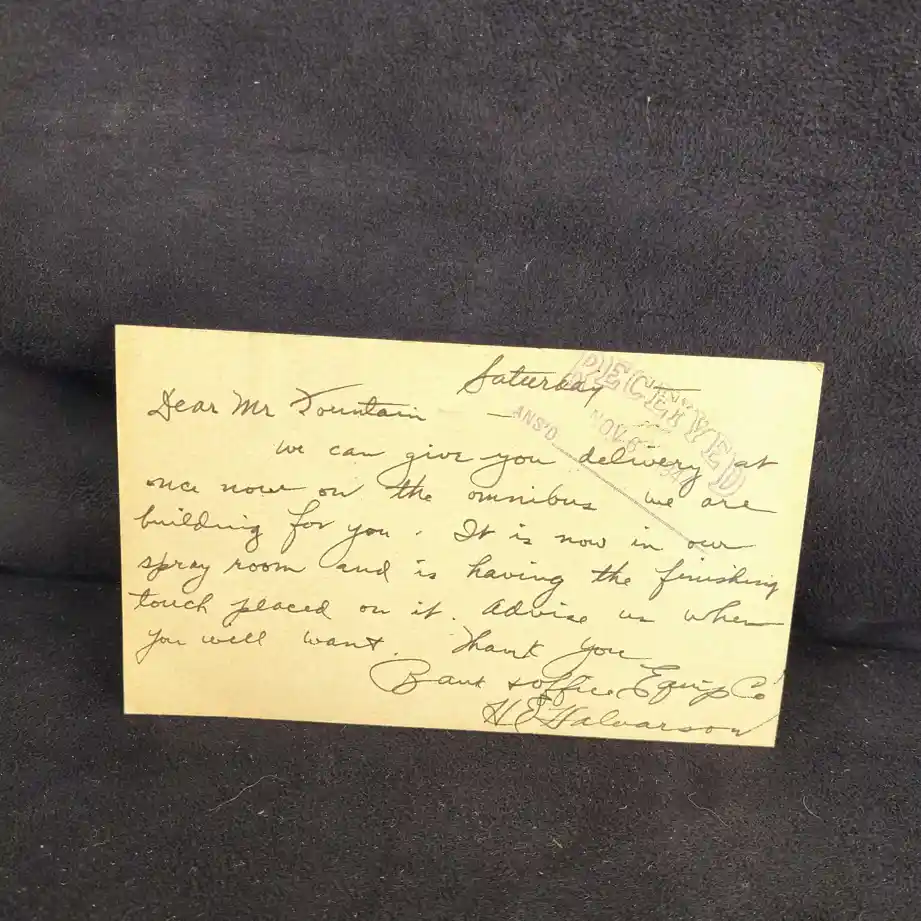 Saturday
RECEIVED
Dear Mr Fountain —
NOV 6 1941
ANS'D
we can give you delivery at
once now on the omnibus we are
building for you. It is now in our
spray room and is having the finishing
touch placed on it. Advise us when
you will want. Thank you
Bank & Office Equip Co
H E Halvarson